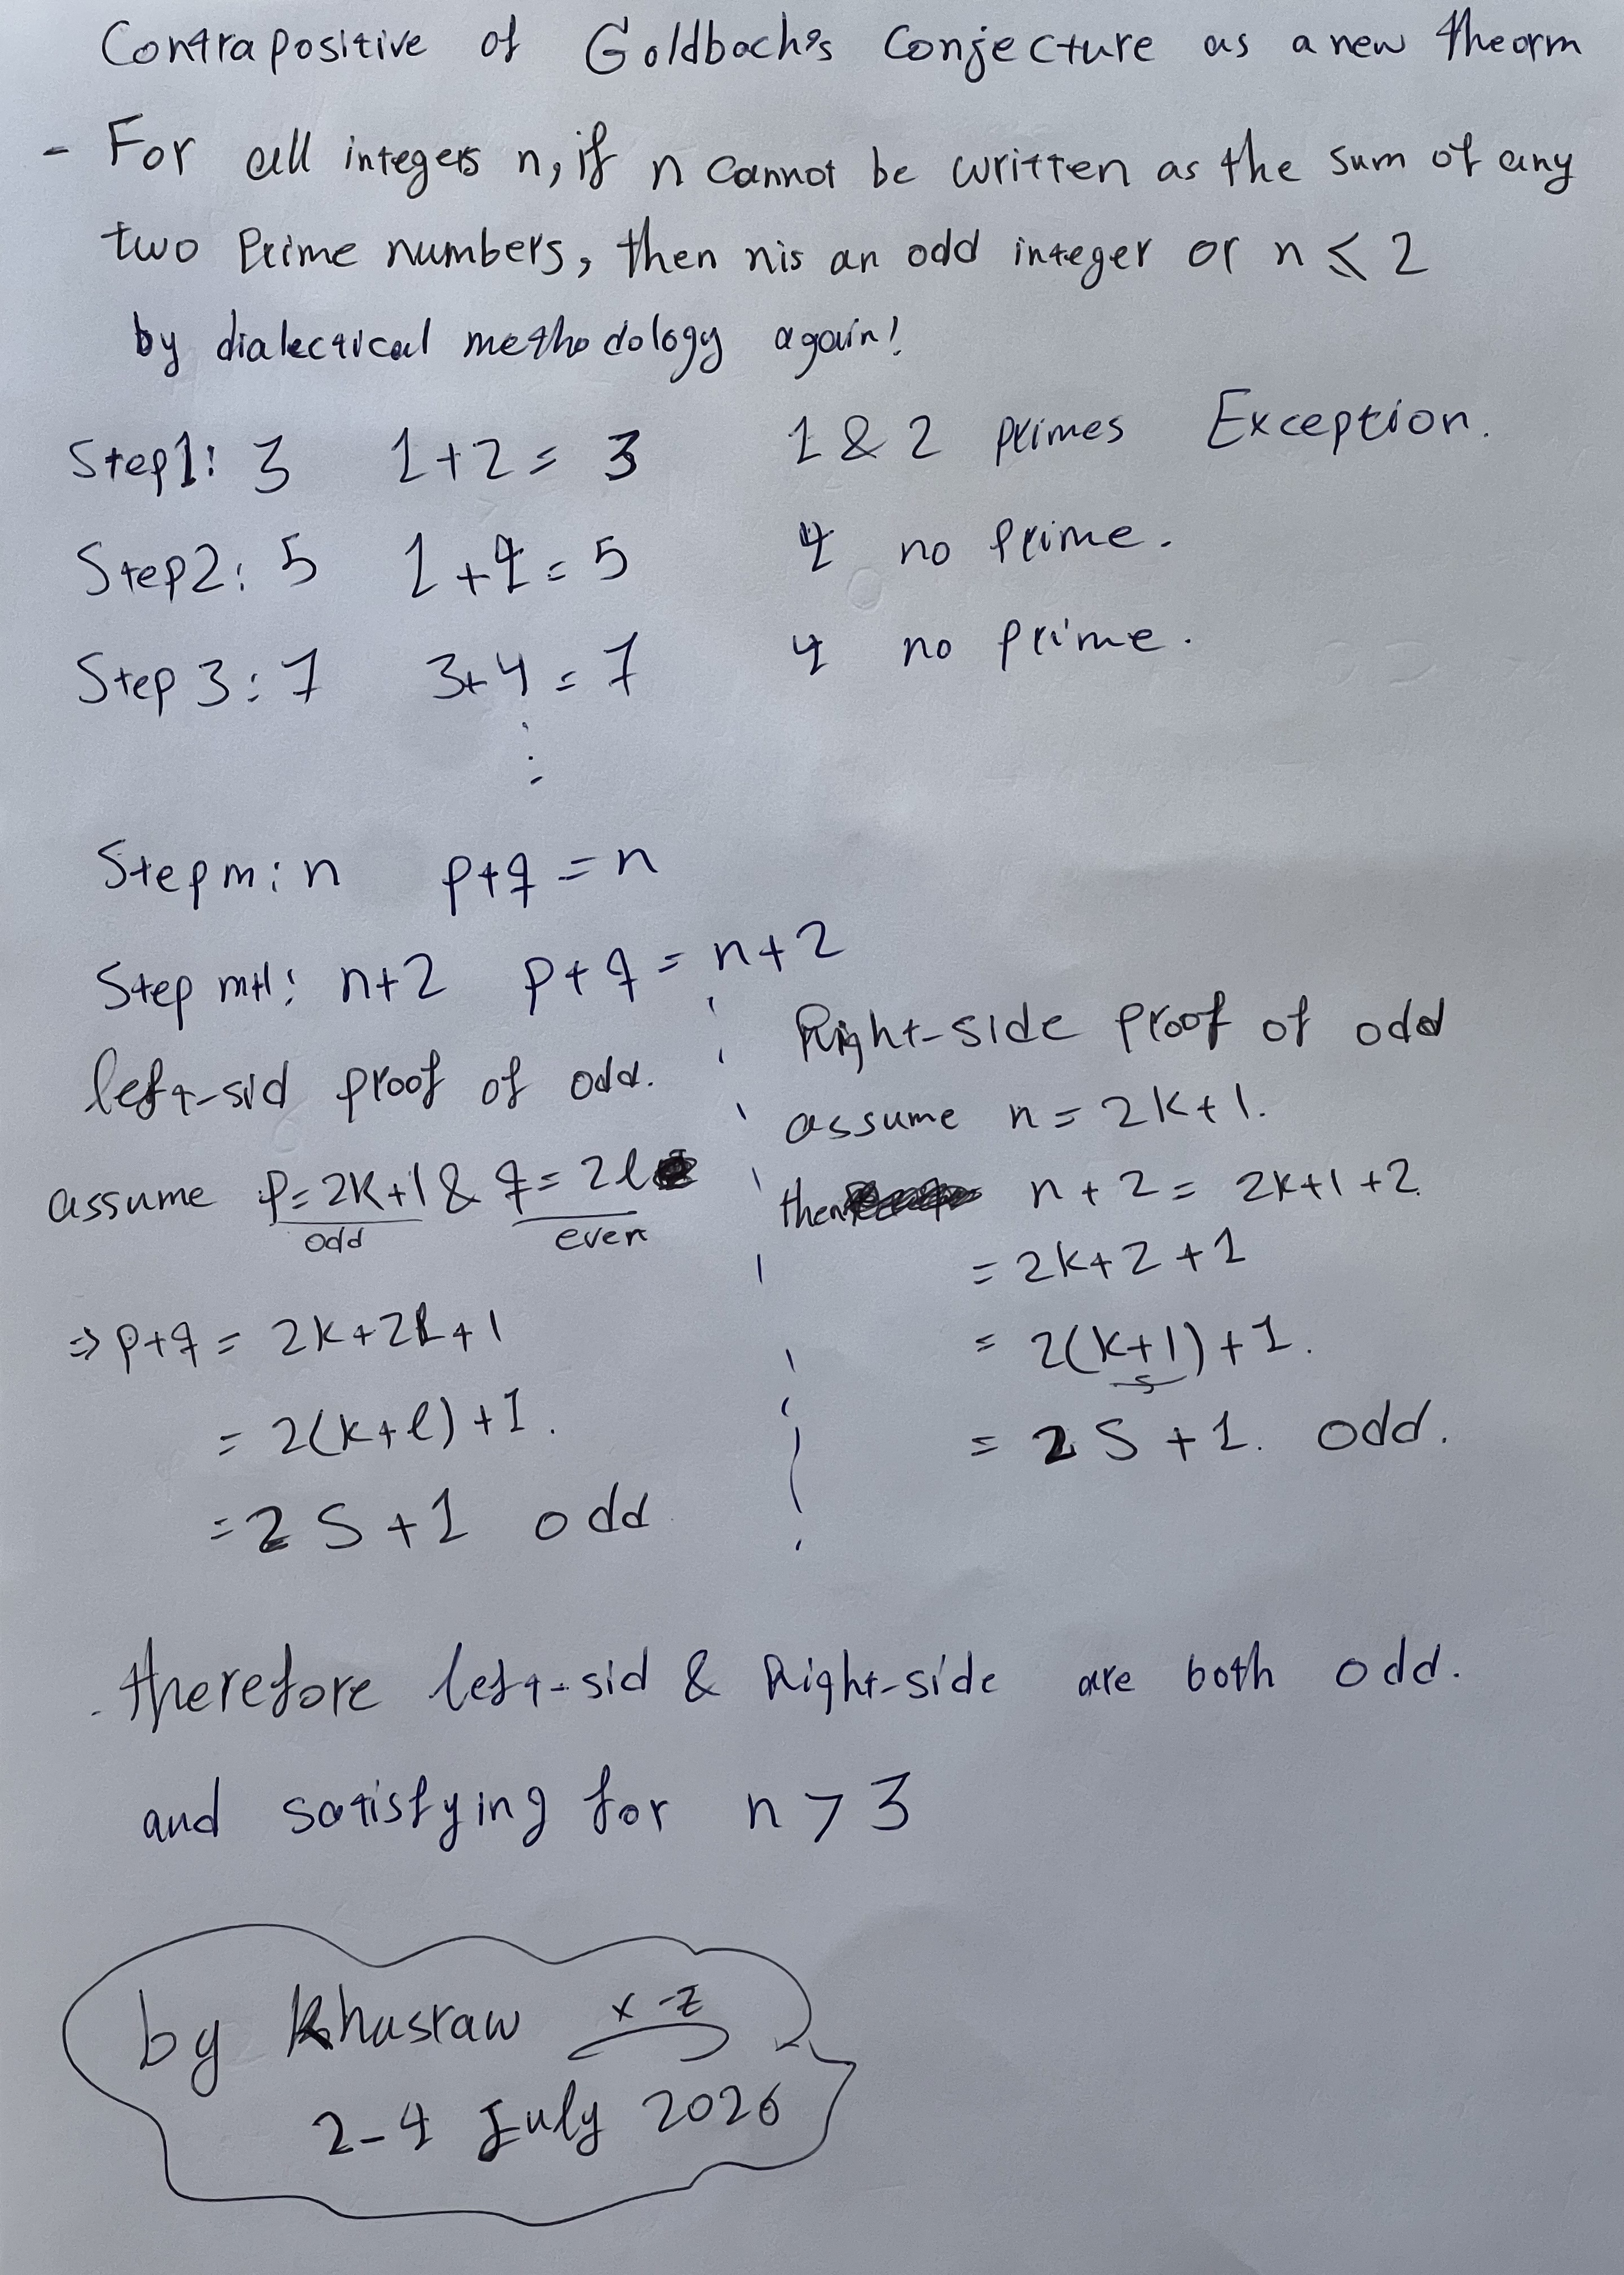 Contrapositive of Goldbach's Conjecture as a new theorm
- For all integers n, if n cannot be written as the sum of any
two Prime numbers, then n is an odd integer or n ≤ 2
by dialectical methodology again!
Step1: 3 1+2 = 3 1 & 2 primes Exception.
Step2: 5 1+4 = 5 4 no prime.
Step 3: 7 3+4 = 7 4 no prime.
⋮
Step m: n p+q = n
Step m+1: n+2 p+q = n+2
left-sid proof of odd.
assume p=2k+1 & q=2l
odd even
⇒ p+q = 2k+2l+1
= 2(k+l)+1.
= 2S+1 odd
Right-side proof of odd
assume n = 2k+1.
then n+2 = 2k+1+2
= 2k+2+1
= 2(k+1)+1.
s
= 2S+1. odd.
therefore left-sid & Right-side are both odd.
and satisfying for n > 3
by Khusraw x-z
2-4 July 2026